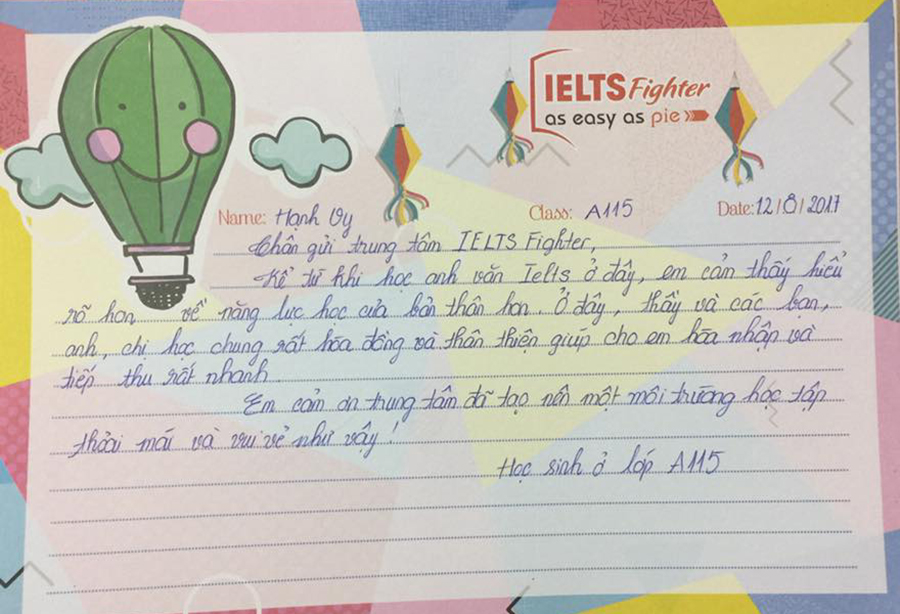 IELTS Fighter
as easy as pie
Name: Hạnh Vy
Class: A115
Date: 12/8/2017
Chân gửi trung tâm IELTS Fighter,
Kể từ khi học anh văn Ielts ở đây, em cảm thấy hiểu
rõ hơn về năng lực học của bản thân hơn. Ở đây, thầy và các bạn,
anh, chị học chung rất hòa đồng và thân thiện giúp cho em hòa nhập và
tiếp thu rất nhanh.
Em cảm ơn trung tâm đã tạo nên một môi trường học tập
thoải mái và vui vẻ như vậy!
Học sinh ở lớp A115